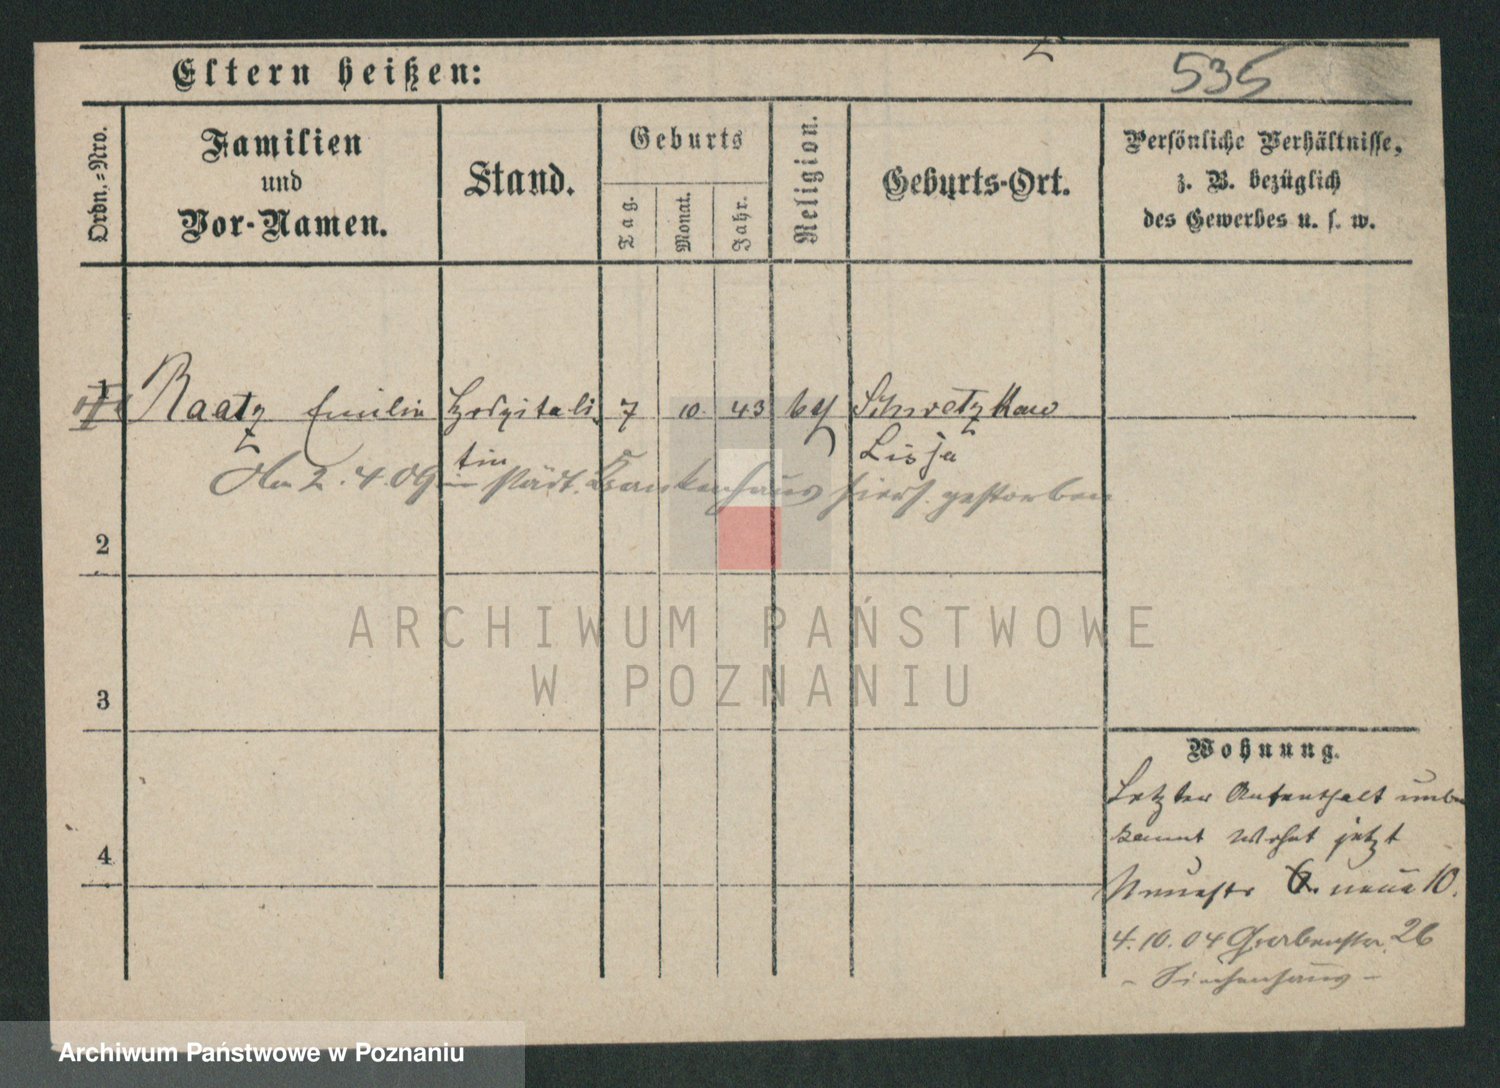 535
Eltern heißen:
Ordn.-Nro.
Familien
und
Vor-Namen.
Stand.
Geburts
Tag.
Monat.
Jahr.
Religion.
Geburts-Ort.
Persönliche Verhältnisse,
z. B. bezüglich
des Gewerbes u. s. w.
1 Raatz Emilie Hospitali- 7 10. 43 Schwetzkau
tin Lissa
Am 2. 4. 09 im städt. Krankenhaus hiers. gestorben
2
3
4
Wohnung.
Letzter Aufenthalt unbe
kannt wohnt jetzt
neue 10.
4. 10. 04 Grabenstr. 26
- Siechenhaus -
ARCHIWUM PAŃSTWOWE
W POZNANIU
Archiwum Państwowe w Poznaniu